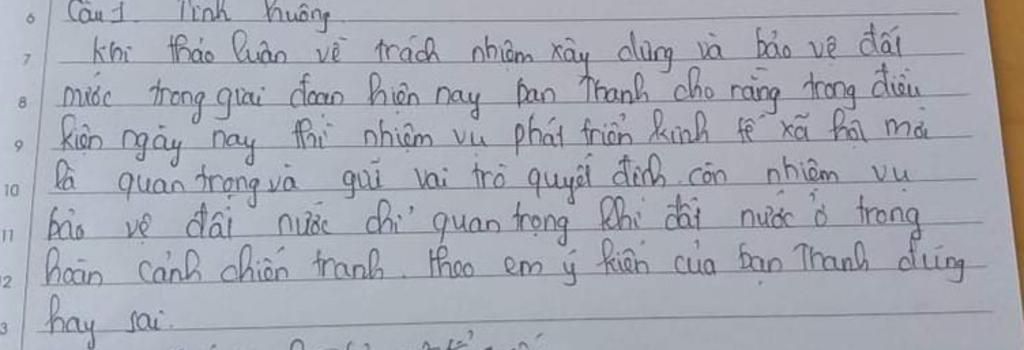 6 Câu 1. Tình huống
7 Khi thảo luận về trách nhiệm xây dựng và bảo vệ đất
8 nước trong giai đoạn hiện nay bạn Thanh cho rằng trong điều
9 kiện ngày nay thì nhiệm vụ phát triển kinh tế xã hội mới
10 là quan trọng và giữ vai trò quyết định còn nhiệm vụ
11 bảo vệ đất nước chỉ quan trọng khi đất nước ở trong
12 hoàn cảnh chiến tranh. theo em ý kiến của bạn Thanh đúng
3 hay sai.